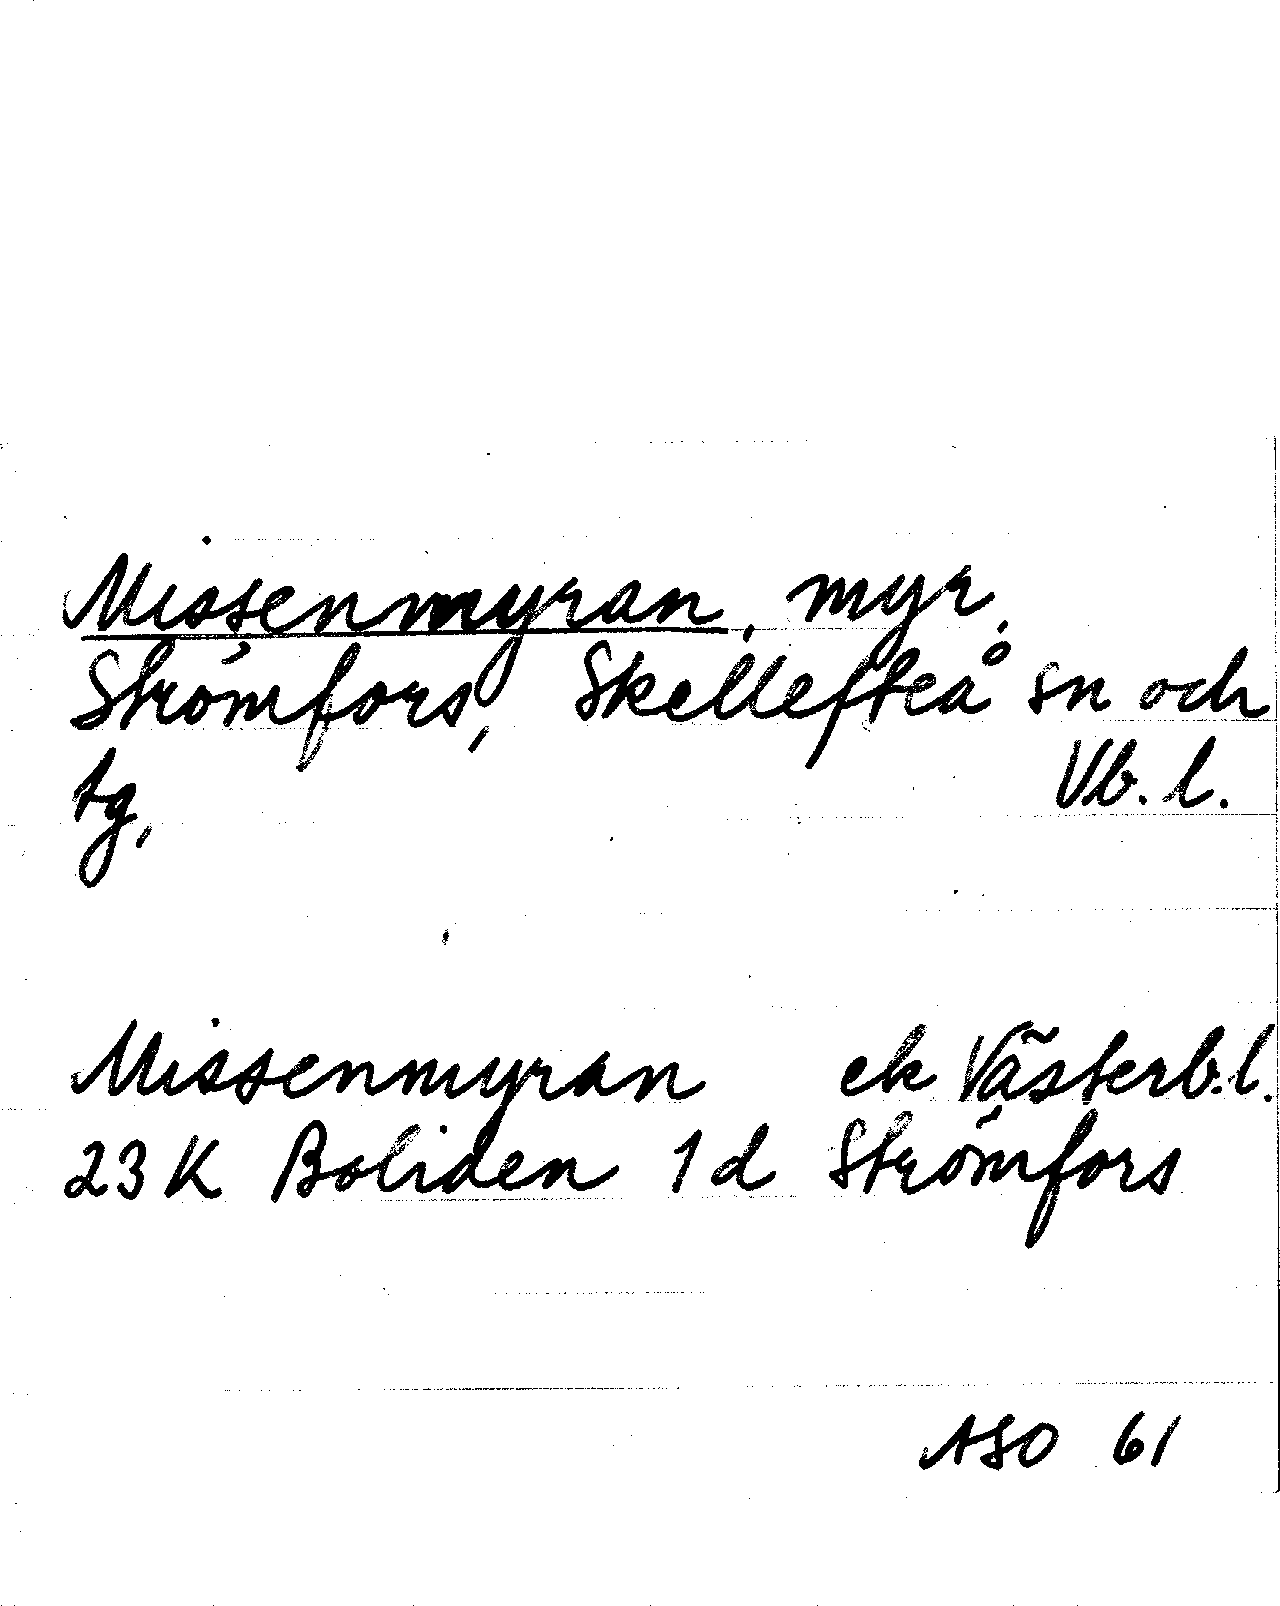 Missenmyran, myr,
Strömfors, Skellefteå sn och
tg, Vb. l.
Missenmyran ek Västerb.l.
23 K Boliden 1 d Strömfors
ASO 61